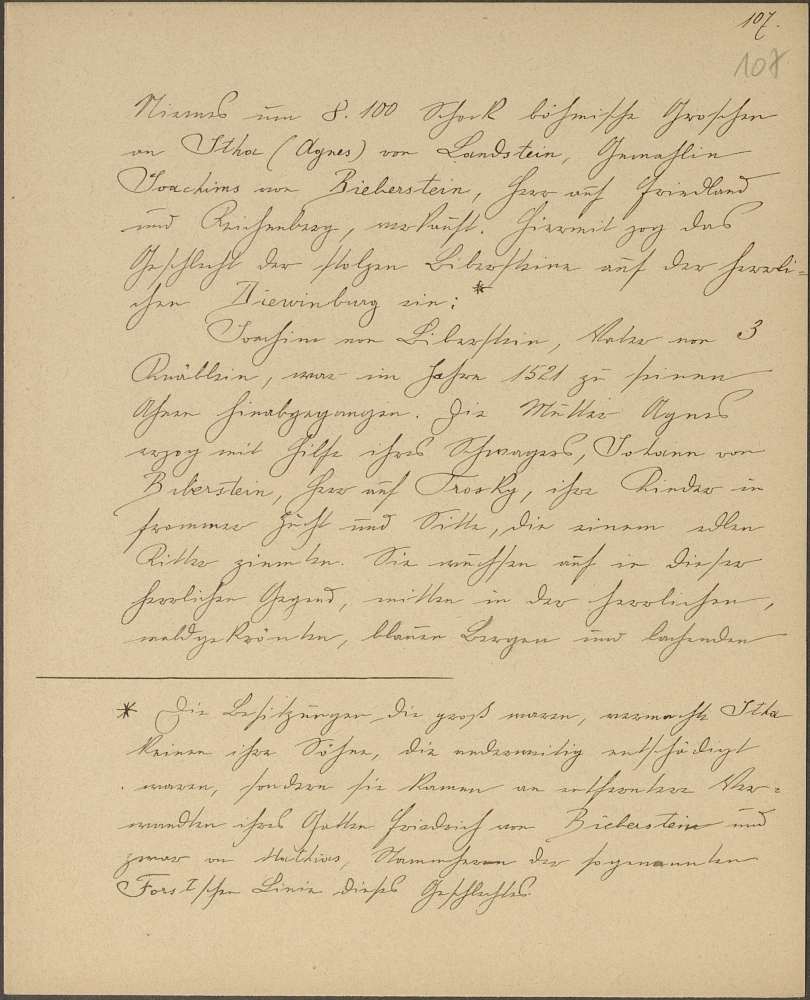 107.
107
Niemes um 8.100 Schock böhmische Groschen
an Itha (Agnes) von Landstein, Gemahlin
Joachims von Bieberstein, Herr auf Friedland
und Reichenberg, verkauft. Hiermit zog das
Geschlecht der stolzen Bibersteine auf der herrli=
chen Diewinburg ein: *
Joachim von Biberstein, Vater von 3
Knäblein, war im Jahre 1521 zu seinen
Ahnen hinabgegangen. Die Mutter Agnes
erzog mit Hilfe ihres Schwagers, Johann von
Biberstein, Herr auf Trosky, ihre Kinder in
frommer Zucht und Sitte, die einem edlen
Ritter ziemten. Sie wuchsen auf in dieser
herrlichen Gegend, mitten in der herrlichen,
waldgekrönten, blauen Bergen und lachenden
* Die Besitzungen, die groß waren, vermachte Itha
keinen ihre Söhne, die anderweitig entschädigt
waren, sondern sie kamen an entferntere Ver=
wandten ihres Gatten Friedrich von Bieberstein und
zwar an Mathias, Stammherrn der sogenannten
Forst'schen Linie dieses Geschlechtes.